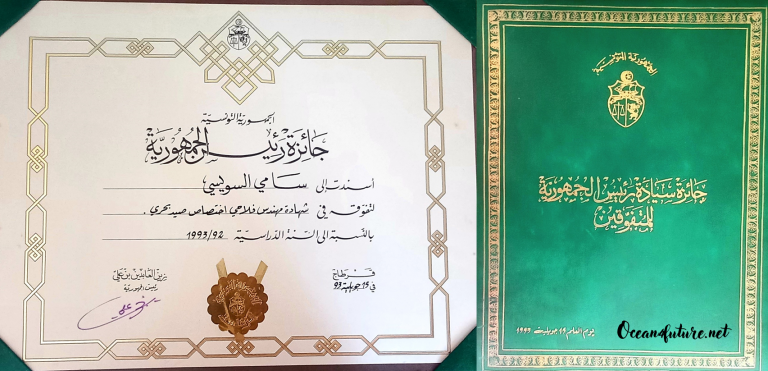 الجمهورية التونسية
جائزة رئيس الجمهورية
أسندت إلى سامي السويسي
لتفوقه في شهادة مهندس فلاحي اختصاص صيد بحري.
بالنسبة الى السنة الدراسية 1993/92
قرطاج
في 15 جويلية 93
زين العابدين بن علي
رئيس الجمهورية
الجمهورية التونسية
جائزة سيادة رئيس الجمهورية
للمتفوقين
يوم العلم
جويلية
Ocean4future.net